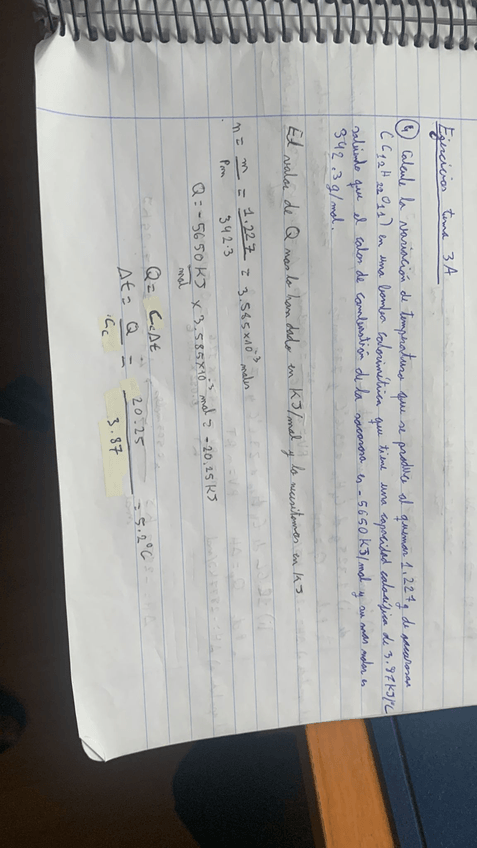 Ejercicios tema 3A
4) Calcule la variación de temperatura que se produce al quemar 1.227g de sacarosa
(C12H22O11) en una bomba calorimétrica que tiene una capacidad calorífica de 3.87KJ/ºC
sabiendo que el calor de combustión de la sacarosa es -5650KJ/mol y su masa molar es
342.3g/mol.
El valor de Q nos lo han dado en KJ/mol y lo necesitamos en KJ
n = m/Pm = 1.227/342.3 = 3.585x10⁻³ moles
Q = -5650KJ/mol x 3.585x10⁻³ mol = -20.25KJ
Q = CcΔt
Δt = Q/Cc = 20.25/3.87 = 5.2ºC